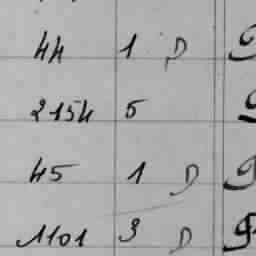 44 1 D
2154 5
45 1 D
1101 3 D